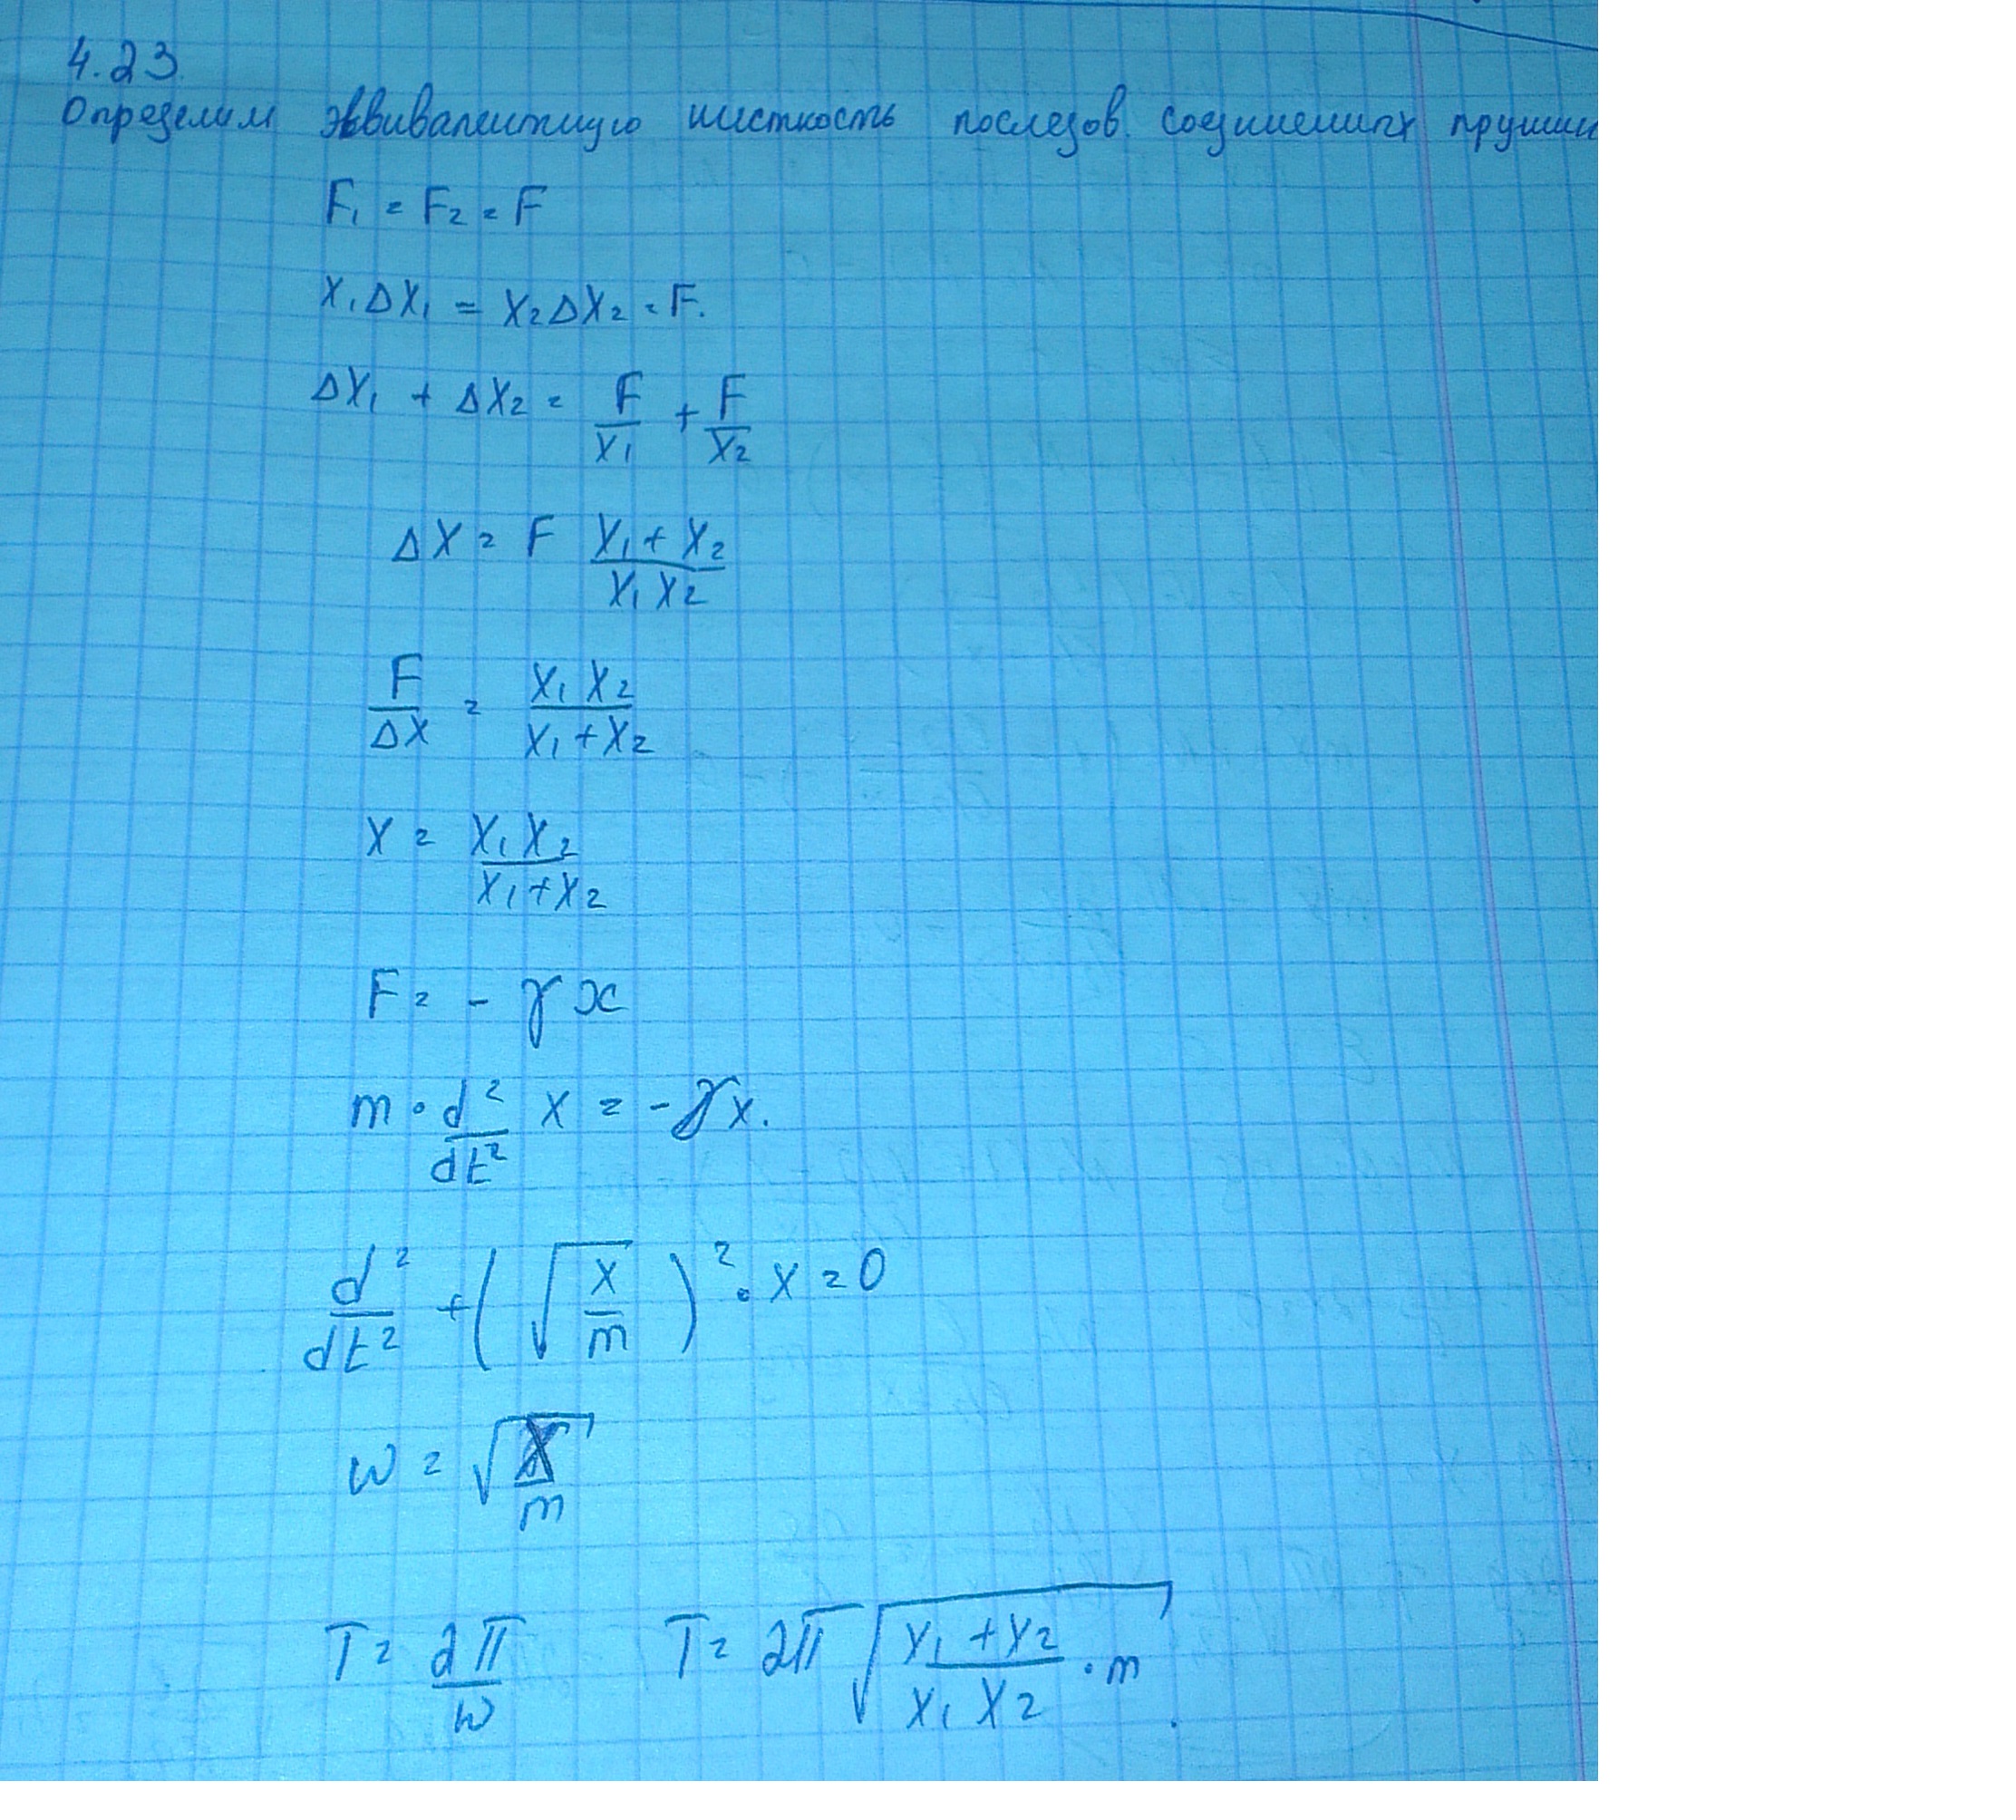 4.23.
Определим эквивалентную жесткость последов. соединенных пружин
F₁ = F₂ = F
X₁ΔX₁ = X₂ΔX₂ = F.
ΔX₁ + ΔX₂ = F/X₁ + F/X₂
ΔX = F (X₁ + X₂)/(X₁X₂)
F/ΔX = X₁X₂/(X₁+X₂)
X = X₁X₂/(X₁+X₂)
F = - γx
m · d²/dt² x = -γx.
d²/dt² + (√(X/m))² · x = 0
w = √(X/m)
T = 2π/w T = 2π√((X₁+X₂)/(X₁X₂) · m)